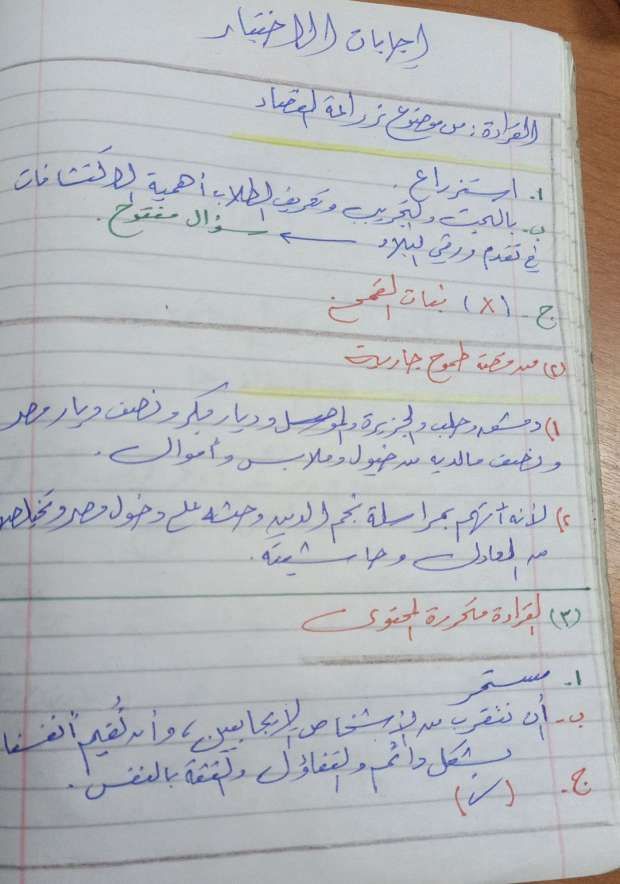 إجابات الاختبار
القراءة: من موضوع زراعة الفضاء
أ. استزراع.
ب. بالبحث والتجريب وتعريف الطلاب أهمية الاكتشافات
في تقدم ورقي البلاد ← سؤال مفتوح.
ج. (X) نبات القمح
(٢) من قصة طموح جارية
١) دمشق وحلب والجزيرة والموصل وديار وبكر ونصف ديار مصر
ونصف مالديه من خيول وملابس وأموال.
٢) لأنه أتهم بمراسلة نجم الدين وحثه على دخول مصر وتخليصها
من العادل وحاشيته.
(٣) القراءة متحررة المحتوى
أ. مستمر
ب. أن نتقرب من الأشخاص الإيجابيين، وأن نُقيم أنفسنا
بشكل دائم والتفاؤل والثقة بالنفس.
ج. (✓)